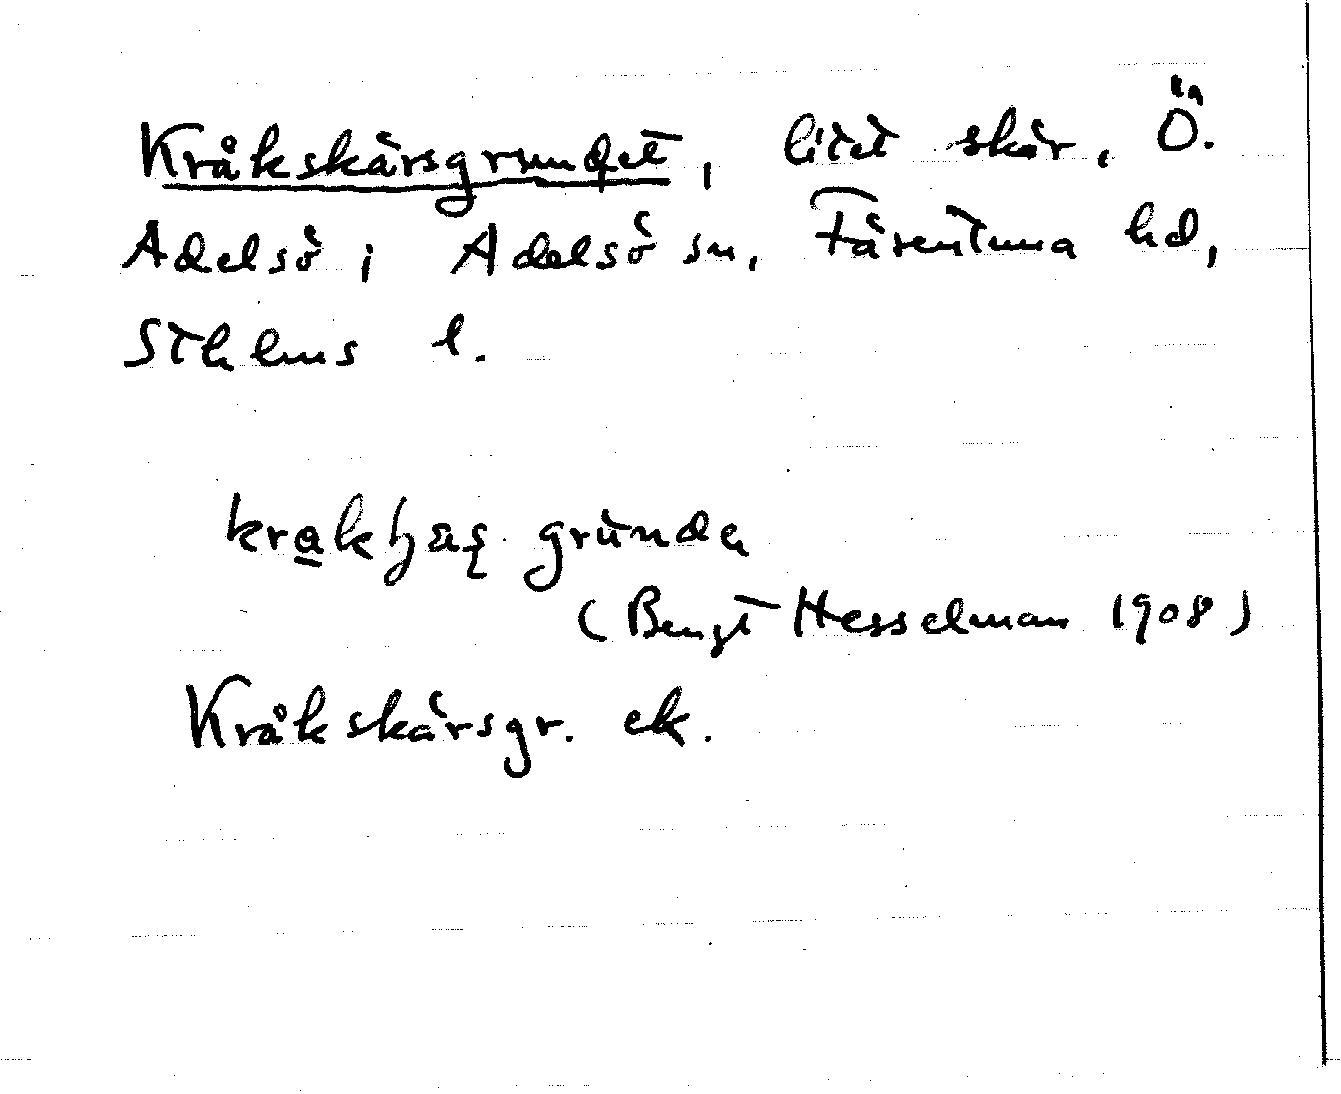 Kråkskärsgrundet, litet skär, Ö.
Adelsö i Adelsö sn, Färentuna hd,
Sthlms l.
grùnda
(Bengt Hesselman 1908)
Kråkskärsgr. ek.